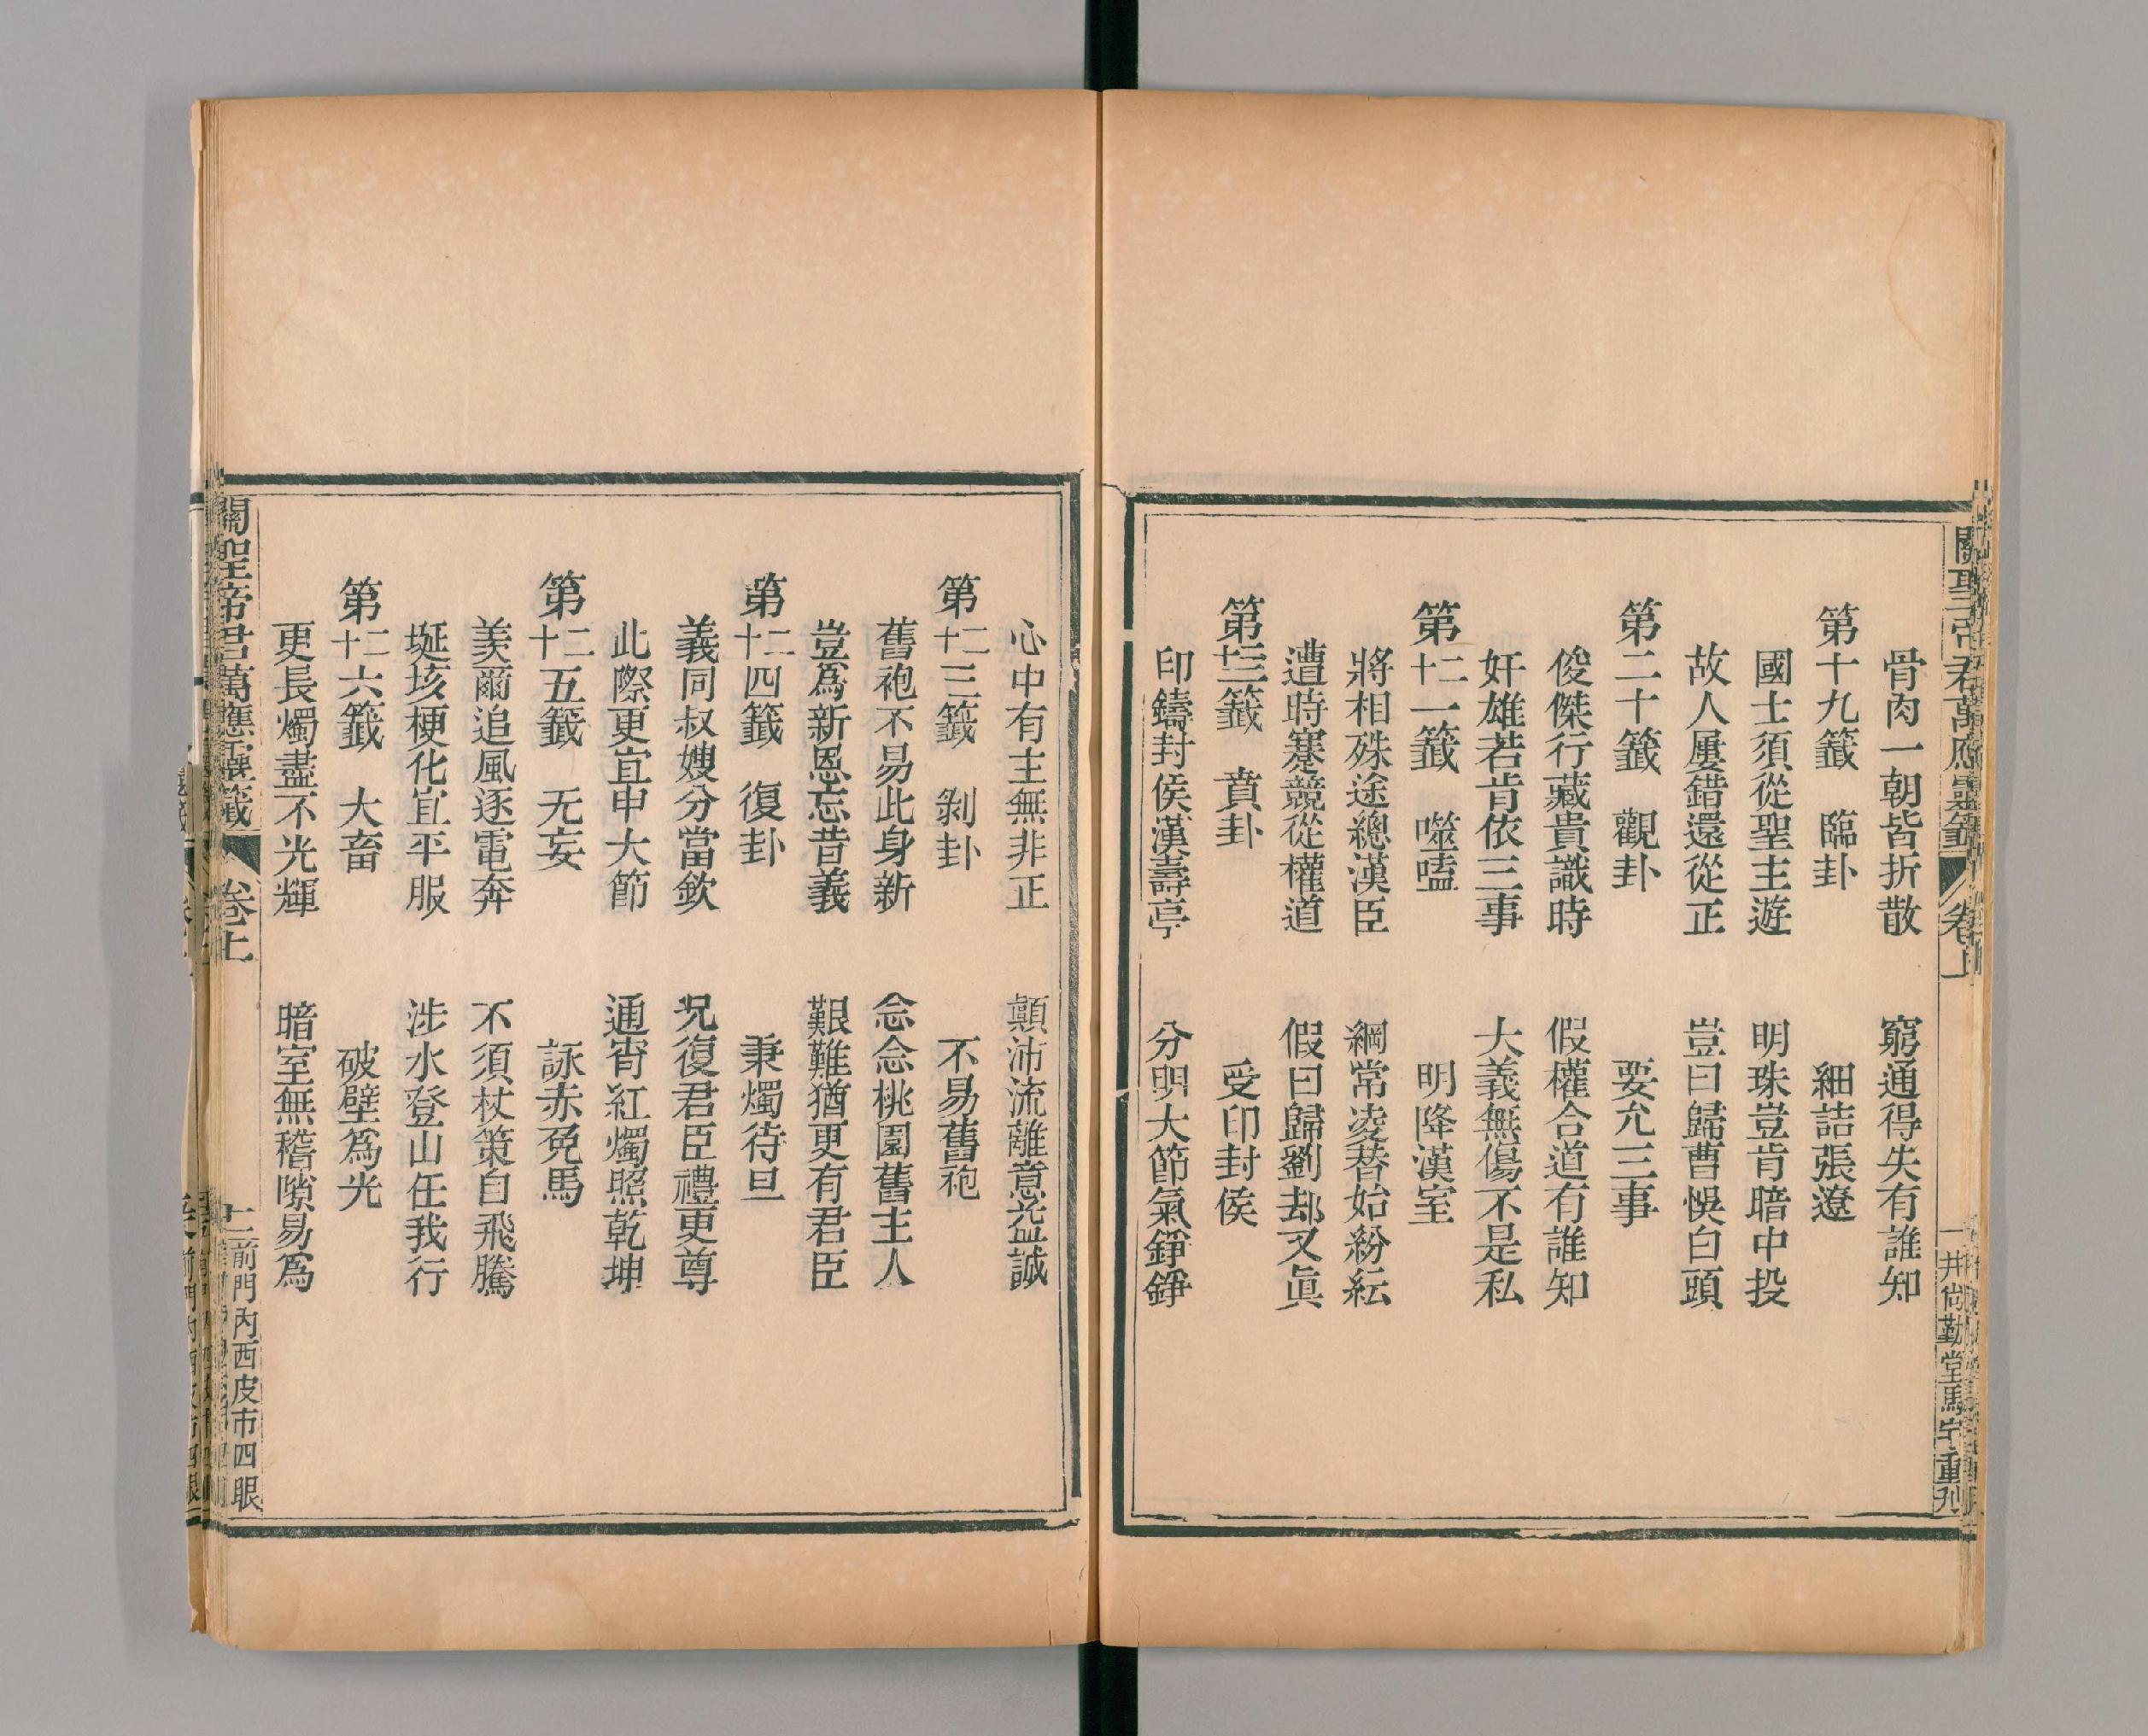 關聖帝君萬應靈籤 卷上
井尙勤堂馬宅重刊
骨肉一朝皆折散 窮通得失有誰知
第十九籤 臨卦 細詰張遼
國士須從聖主遊 明珠豈肯暗中投
故人屢錯還從正 豈曰歸曹悞白頭
第二十籤 觀卦 要允三事
俊傑行藏貴識時 假權合道有誰知
奸雄若肯依三事 大義無傷不是私
第二十一籤 噬嗑 明降漢室
將相殊途總漢臣 綱常凌替始紛紜
遭時蹇競從權道 假曰歸劉却又眞
第二十二籤 賁卦 受印封侯
印鑄封侯漢壽亭 分明大節氣錚錚
心中有主無非正 顚沛流離意益誠
第二十三籤 剝卦 不易舊袍
舊袍不易此身新 念念桃園舊主人
豈爲新恩忘昔義 艱難猶更有君臣
第二十四籤 復卦 秉燭待旦
義同叔嫂分當欽 況復君臣禮更尊
此際更宜申大節 通宵紅燭照乾坤
第二十五籤 无妄 詠赤兔馬
羨爾追風逐電奔 不須杖策自飛騰
埏垓梗化宜平服 涉水登山任我行
第二十六籤 大畜 破壁爲光
更長燭盡不光輝 暗室無稽隙易爲
關聖帝君萬應靈籤 卷上 十二 前門內西皮市四眼